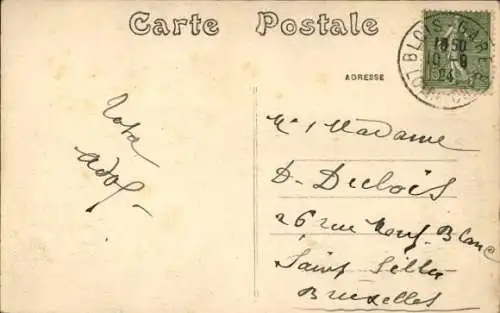 Carte Postale
ADRESSE
BLOIS-GARE
18 50
10 - 9
24
Madame
D. Dubois
26 rue Neuf. Blanc
Saint Gilles
Bruxelles